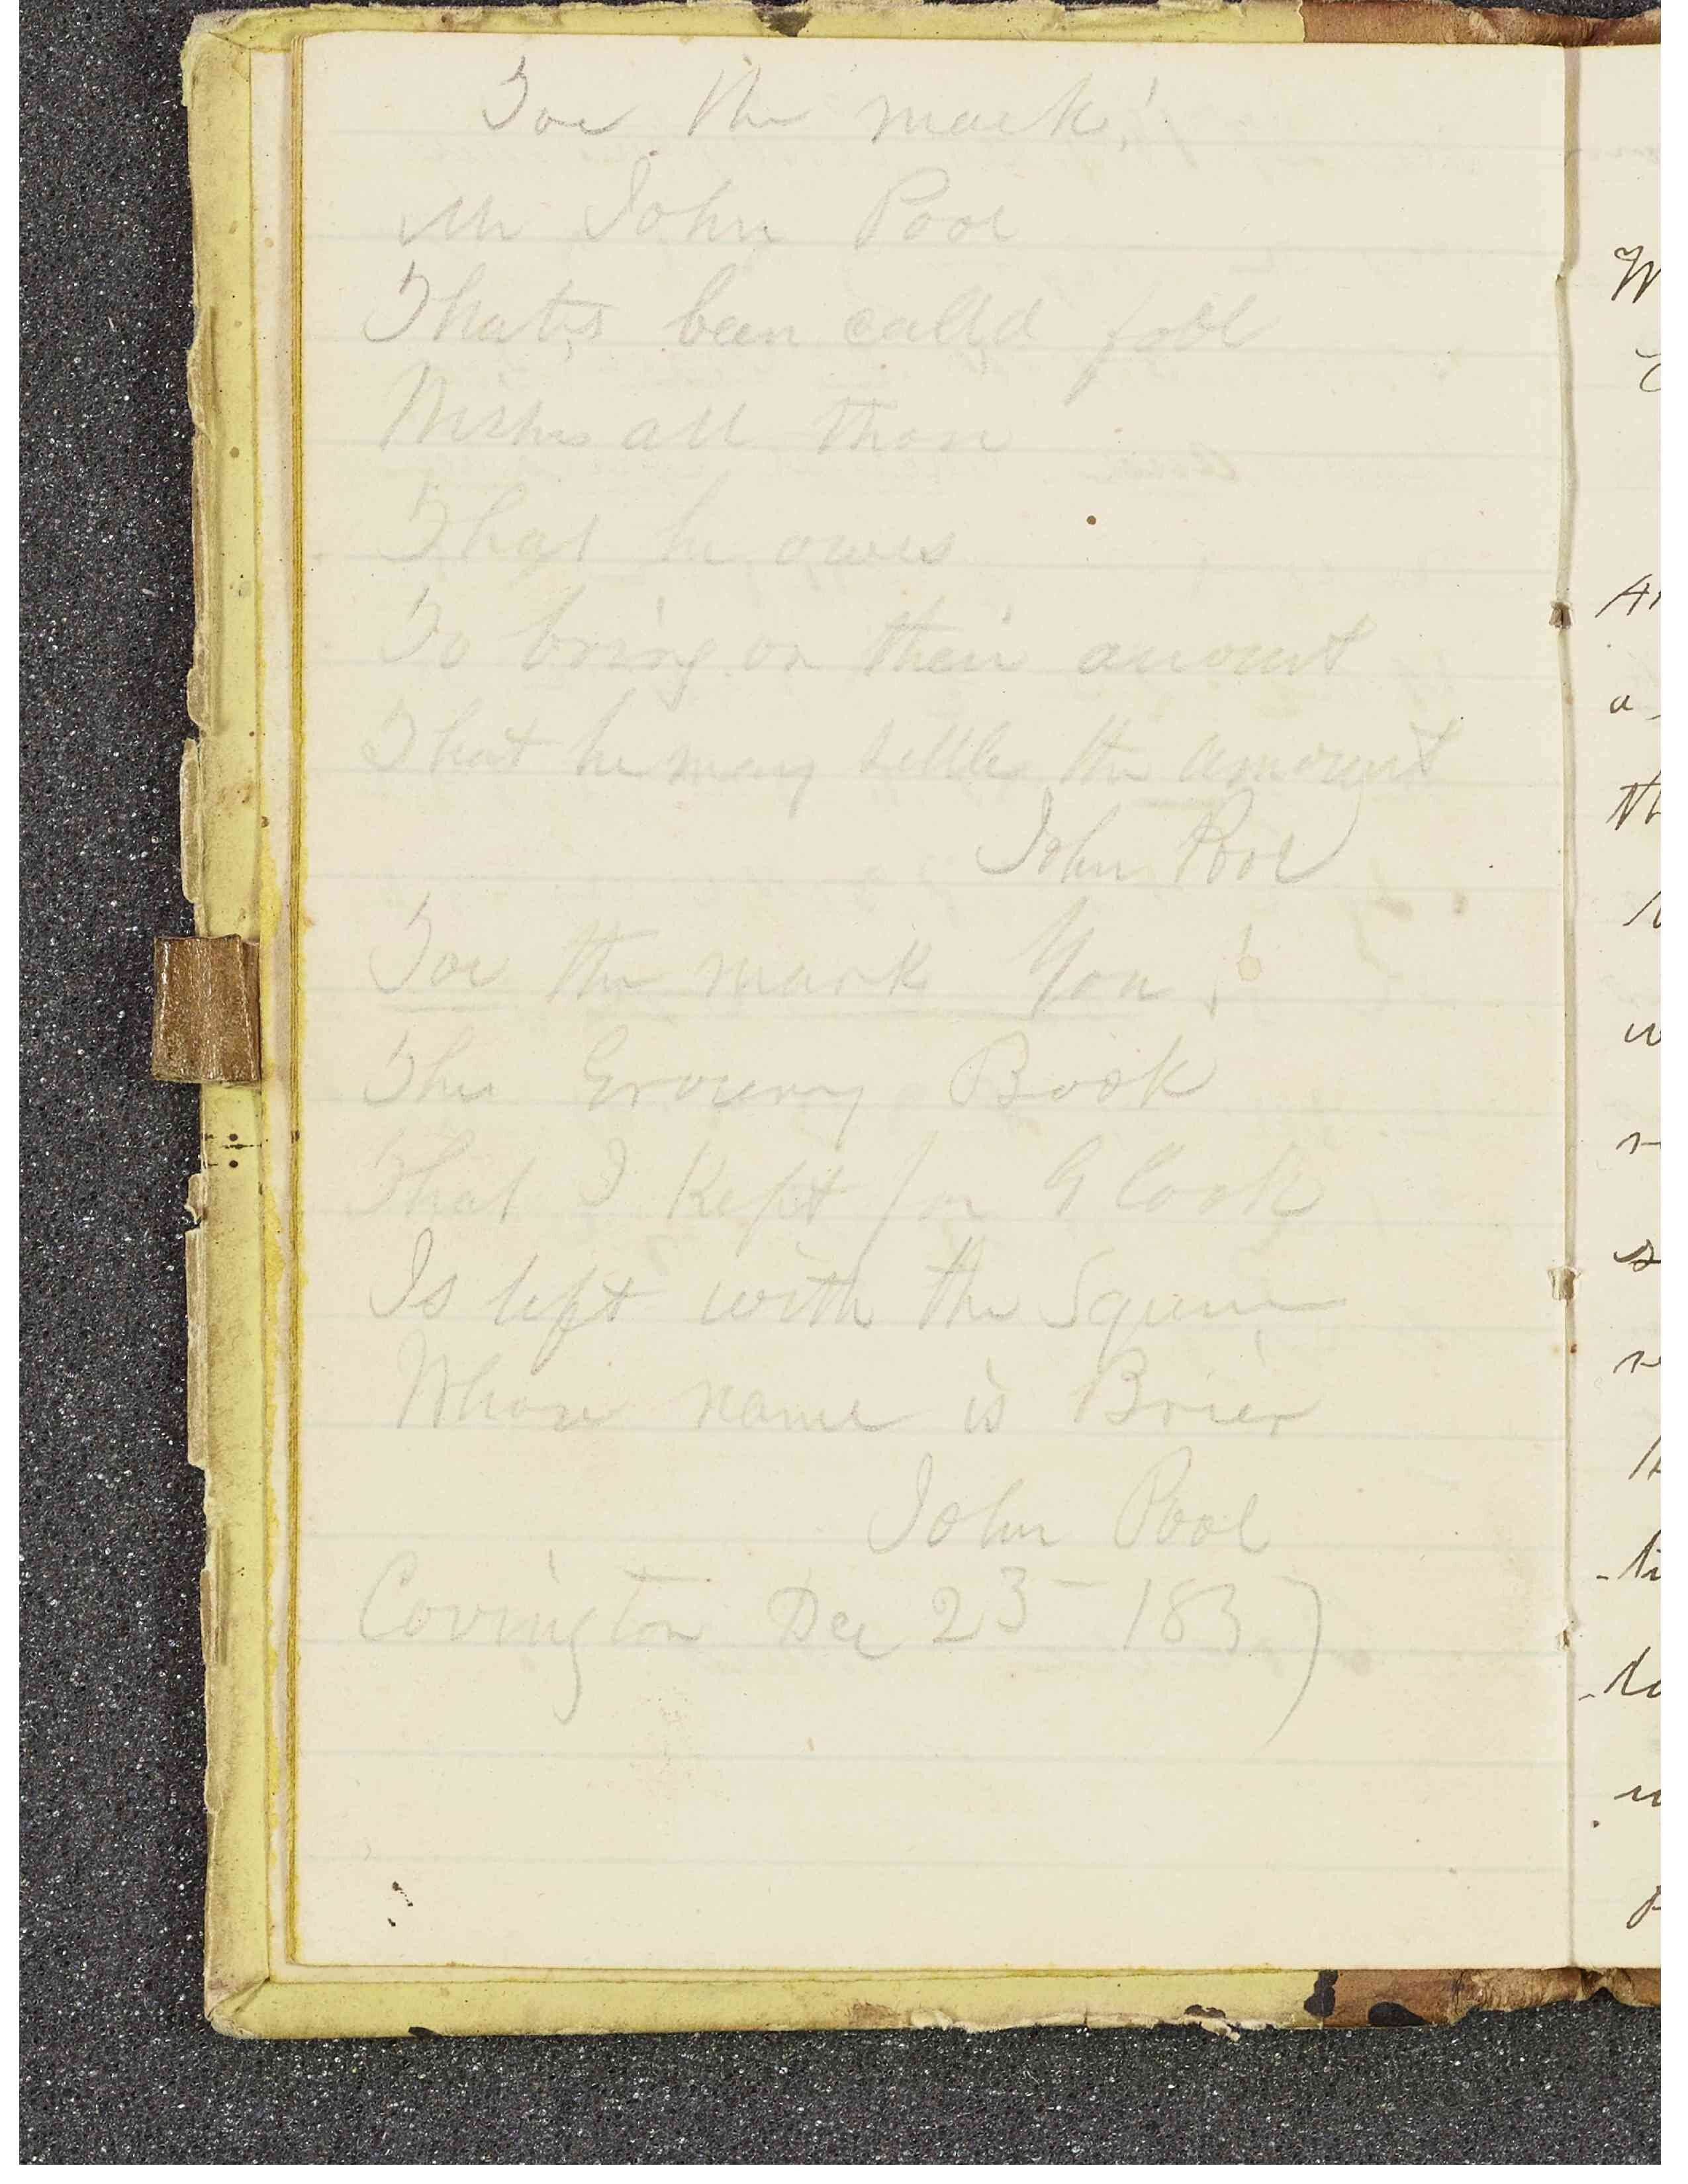 Toe the mark!
Mr John Pool
That's been call'd fool
Wishes all those
That he owes
To bring on their account
That he may settle the amount
John Pool
Toe the mark You!
The Grocery Book
That I Kept for G Cook
Is left with the Squire
Whose name is Brier
John Pool
Covington Dec 23 - 1837